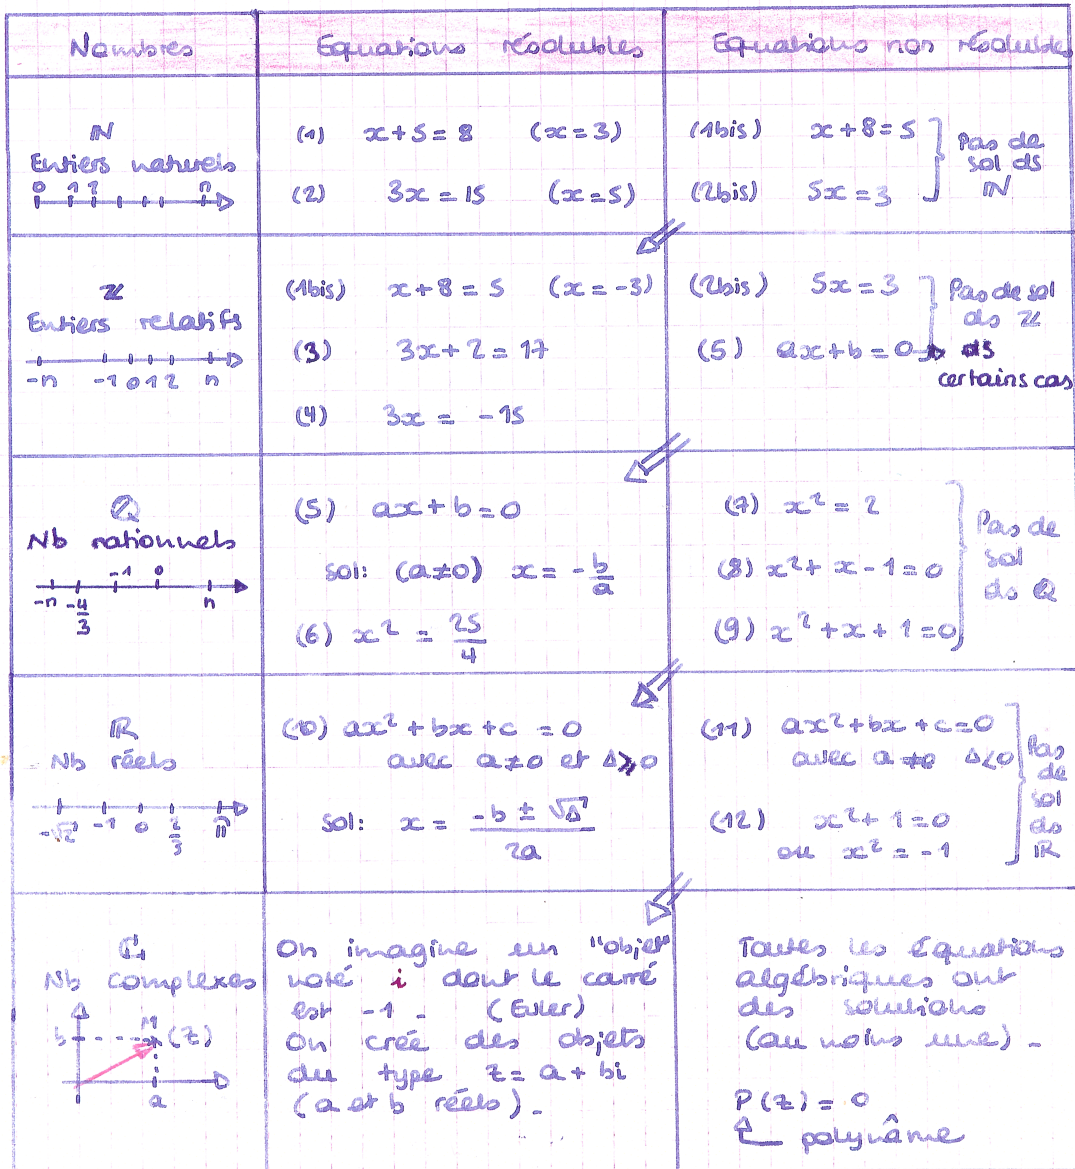 Nombres
Equations résolubles
Equations non résolubles
ℕ
Entiers naturels
0 1 2 n
(1) x+5=8 (x=3)
(2) 3x=15 (x=5)
(1bis) x+8=5
(2bis) 5x=3
Pas de
sol ds
ℕ
ℤ
Entiers relatifs
-n -1 0 1 2 n
(1bis) x+8=5 (x=-3)
(3) 3x+2=17
(4) 3x = -15
(2bis) 5x=3
(5) ax+b=0 → ds
certains cas
Pas de sol
ds ℤ
ℚ
Nb rationnels
-n -4/3 -1 0 n
(5) ax+b=0
sol: (a≠0) x = -b/a
(6) x² = 25/4
(7) x² = 2
(8) x²+x-1=0
(9) x²+x+1=0
Pas de
sol
ds ℚ
ℝ
Nb réels
-√2 -1 0 2/3 π
(10) ax²+bx+c = 0
avec a≠0 et Δ≥0
sol: x = (-b ± √Δ)/2a
(11) ax²+bx+c=0
avec a≠0 Δ<0
(12) x²+1=0
ou x² = -1
Pas
de
sol
ds
ℝ
ℂ
Nb complexes
b M (z)
a
On imagine un "objet"
noté i dont le carré
est -1. (Euler)
On créé des objets
du type z = a + bi
(a et b réels).
Toutes les équations
algébriques ont
des solutions
(au moins une).
P(z) = 0
polynôme